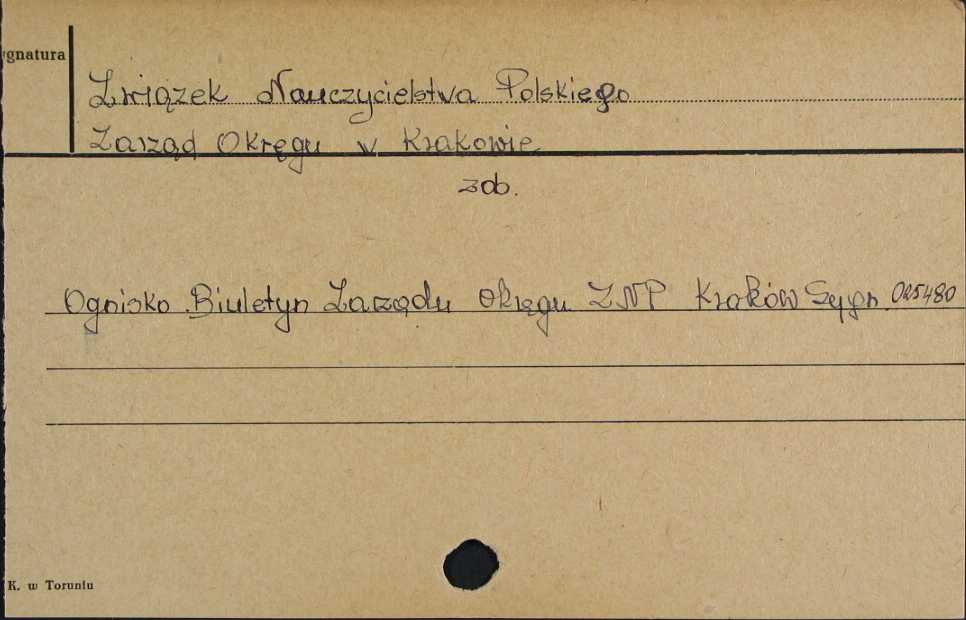 ygnatura
Związek Nauczycielstwa Polskiego
Zarząd Okręgu w Krakowie
zob.
Ognisko Biuletyn Zarządu Okręgu ZNP Kraków Sygn. 025480
K. w Toruniu